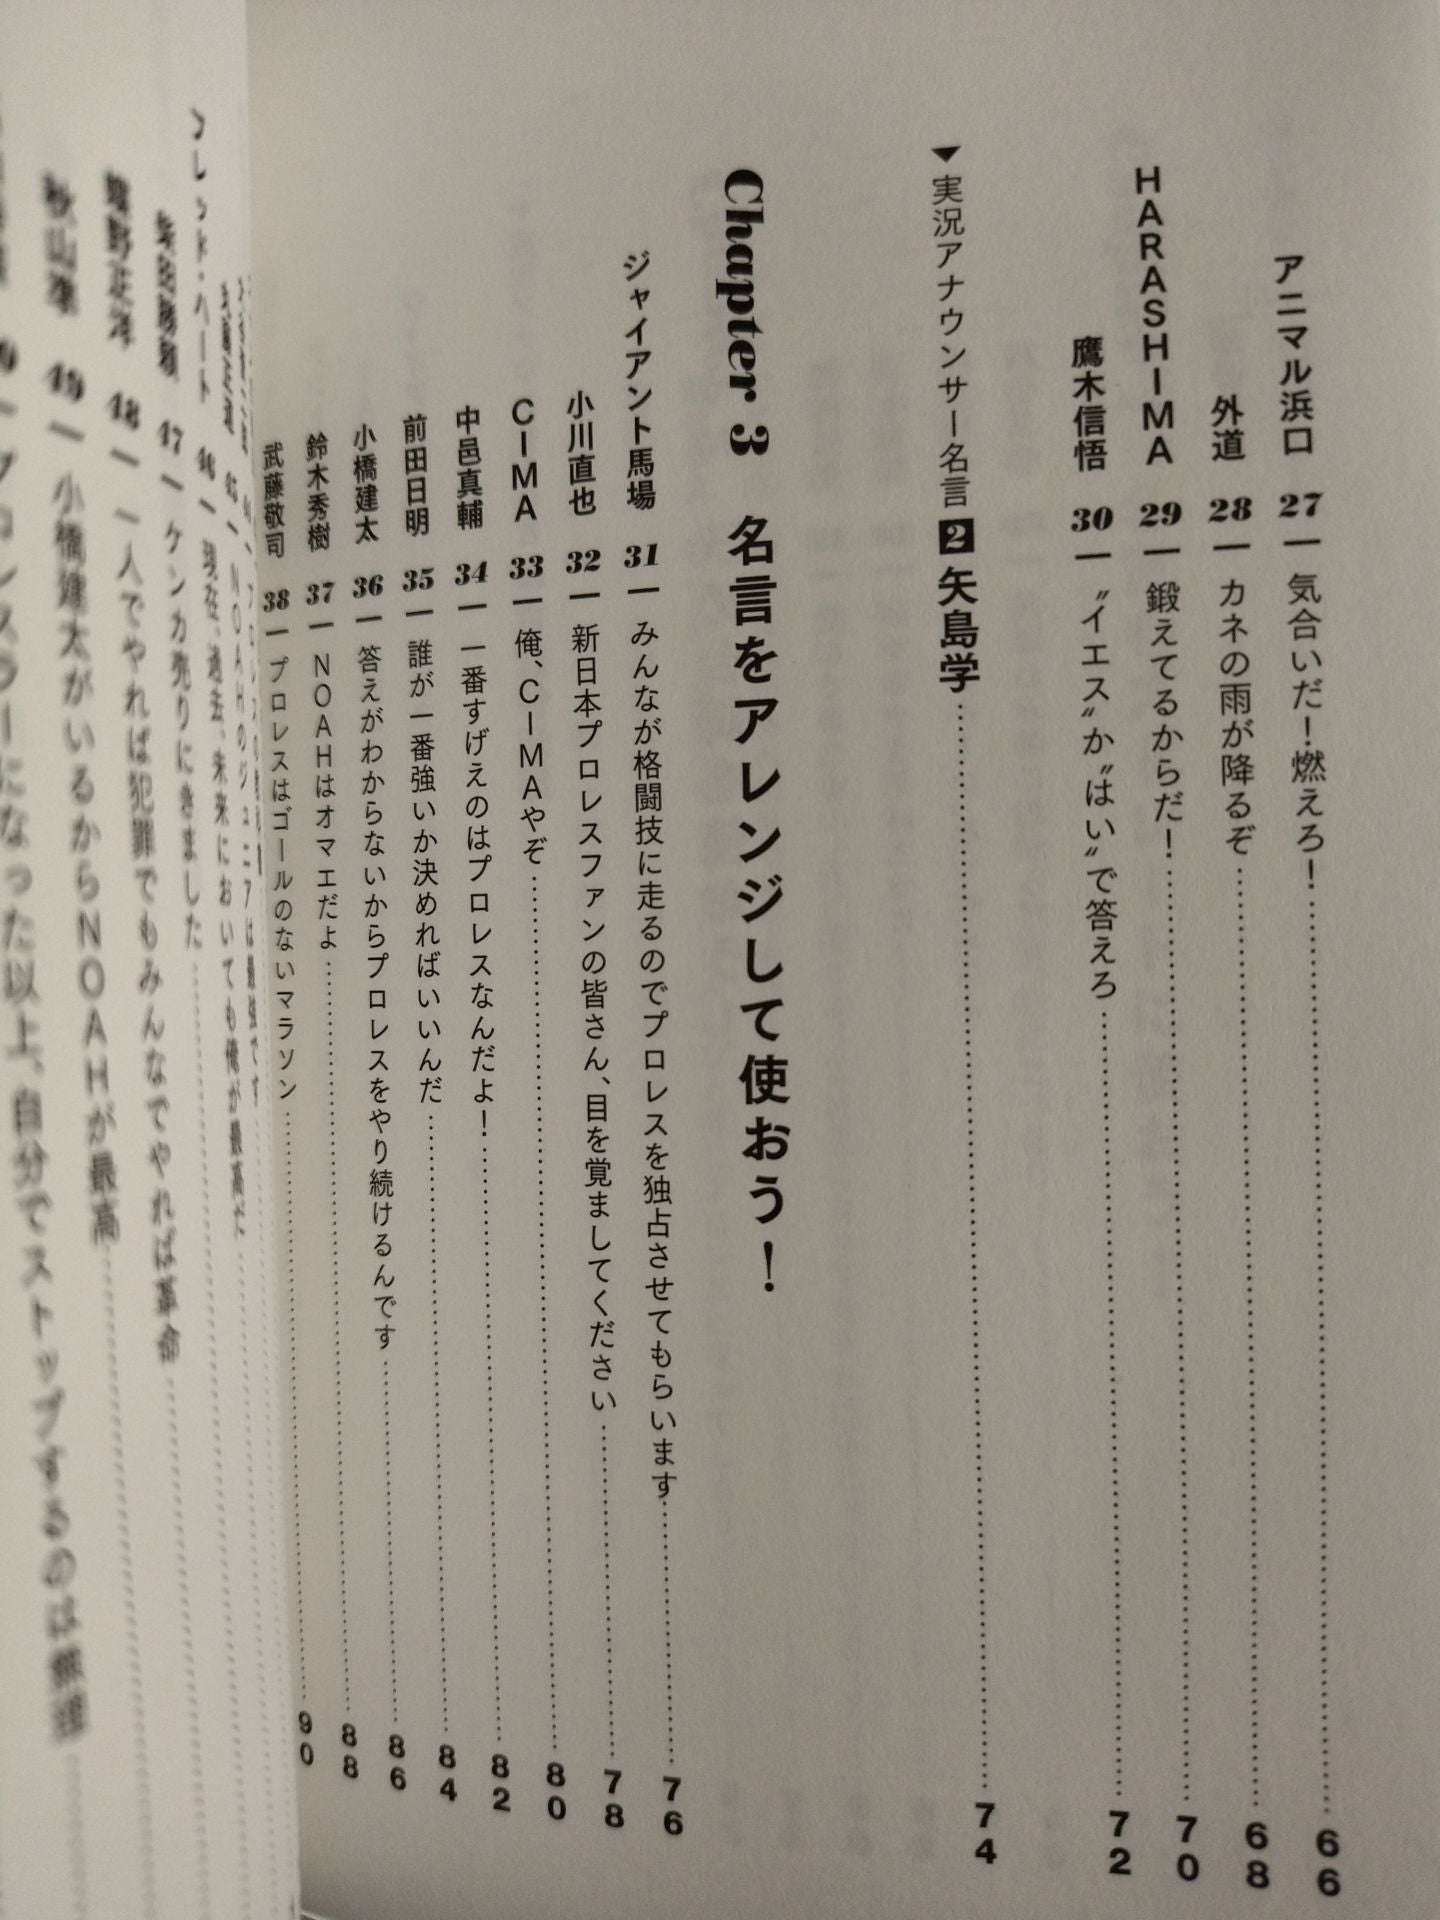 アニマル浜口 27 ― 気合いだ！燃えろ！ 66
外道 28 ― カネの雨が降るぞ 68
HARASHIMA 29 ― 鍛えてるからだ！ 70
鷹木信悟 30 ― 〝イエス〟か〝はい〟で答えろ 72
▼実況アナウンサー名言2 矢島学 74
Chapter 3 名言をアレンジして使おう！
ジャイアント馬場 31 ― みんなが格闘技に走るのでプロレスを独占させてもらいます 76
小川直也 32 ― 新日本プロレスファンの皆さん、目を覚ましてください 78
CIMA 33 ― 俺、CIMAやぞ 80
中邑真輔 34 ― 一番すげえのはプロレスなんだよ！ 82
前田日明 35 ― 誰が一番強いか決めればいいんだ 84
小橋建太 36 ― 答えがわからないからプロレスをやり続けるんです 86
鈴木秀樹 37 ― NOAHはオマエだよ 88
武藤敬司 38 ― プロレスはゴールのないマラソン 90
46 ― 現在、過去、未来においても俺が最高だ
47 ― ケンカ売りにきました
蝶野正洋 48 ― 一人でやれば犯罪でもみんなでやれば革命
秋山準 49 ― 小橋建太がいるからNOAHが最高
プロレスラーになった以上、自分でストップするのは無理